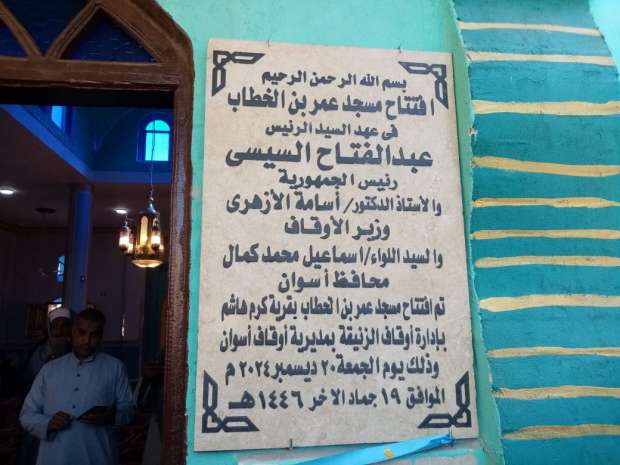 بسم الله الرحمن الرحيم
افتتاح مسجد عمر بن الخطاب
فى عهد السيد الرئيس
عبدالفتاح السيسى
رئيس الجمهورية
والأستاذ الدكتور/ أسامة الأزهرى
وزير الأوقاف
والسيد اللواء/ اسماعيل محمد كمال
محافظ أسوان
تم افتتاح مسجد عمر بن الخطاب بقرية كرم هاشم
بإدارة أوقاف الزنيقة بمديرية أوقاف أسوان
وذلك يوم الجمعة ٢٠ ديسمبر ٢٠٢٤ م
الموافق ١٩ جماد الاخر ١٤٤٦ هـ